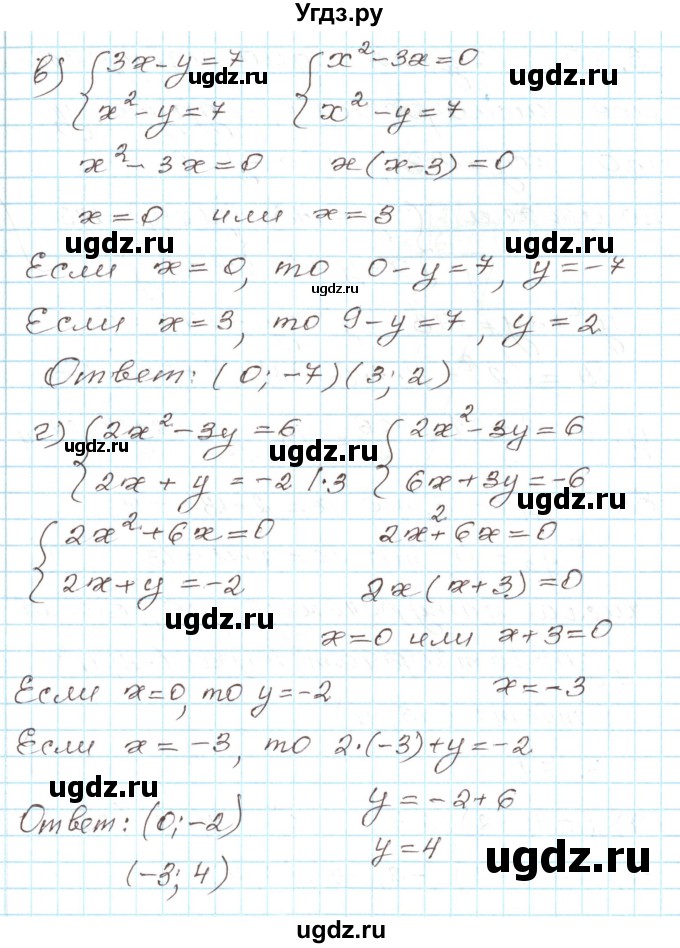 Угдз.ру
в) { 3x-y=7    { x²-3x=0
x²-y=7    x²-y=7
ugdz.ru ugdz.ru
x²-3x=0    x(x-3)=0
x=0 или x=3
ugdz.ru ugdz.ru
Если x=0, то 0-y=7, y=-7
ugdz.ru
Если x=3, то 9-y=7, y=2
Ответ: (0;-7)(3;2)
г) { 2x²-3y=6    { 2x²-3y=6
ugdz.ru ugdz.ru
2x+y=-2 /·3    6x+3y=-6
ugdz.ru
{ 2x²+6x=0    2x²+6x=0
2x+y=-2    2x(x+3)=0
ugdz.ru
x=0 или x+3=0
Если x=0, то y=-2    x=-3
Если x=-3, то 2·(-3)+y=-2
ugdz.ru
Ответ: (0;-2)    y=-2+6
(-3;4)    y=4
ugdz.ru
ugdz.ru